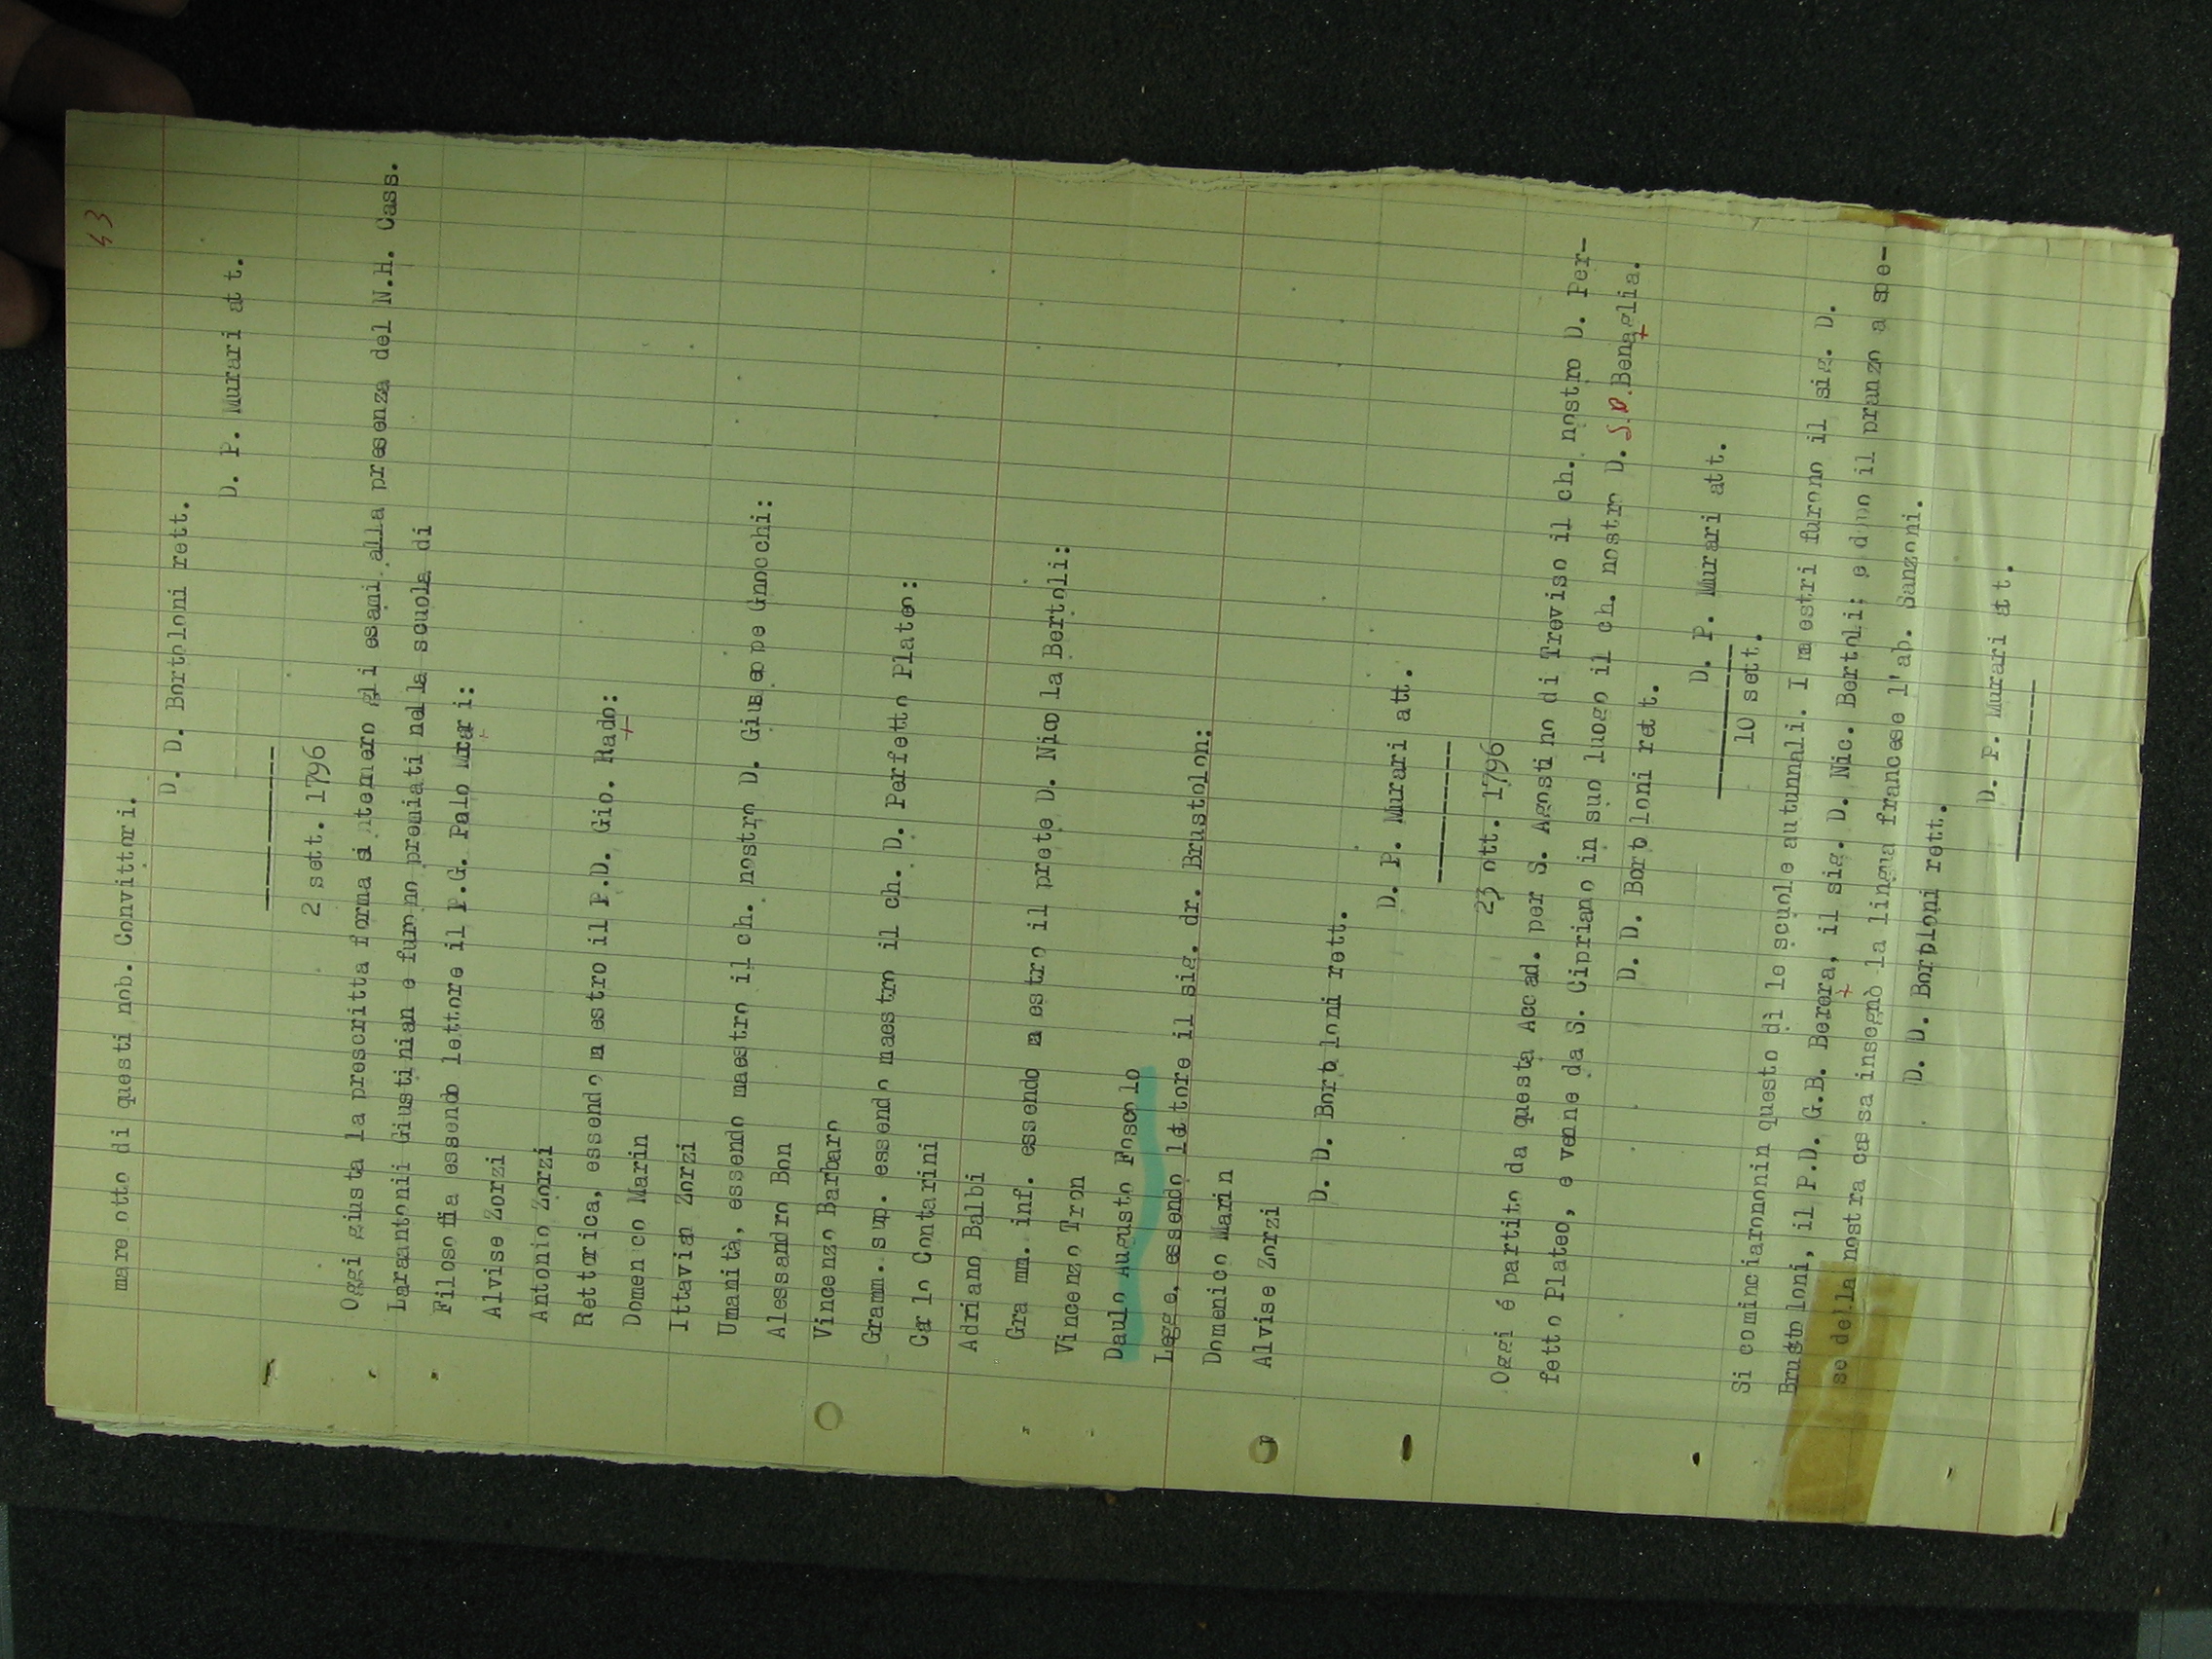 43
mare otto di questi nob. Convittori.
D. D. Bortoloni rett.
D. P. Murari att.
2 sett. 1796
Oggi giusta la prescritta forma si tennero gli esami alla presenza del N.H. Cass.
Larantonii Giustinian e furono premiati nella scuola di
Filosofia essendo lettore il P.G. Palo Murari:
Alvise Zorzi
Antonio Zorzi
Rettorica, essendo maestro il P.D. Gio. Rado:
Domenico Marin
Ittavian Zorzi
Umanità, essendo maestro il ch. nostro D. Giuseppe Gnocchi:
Alessandro Bon
Vincenzo Barbaro
Gramm. sup. essendo maestro il ch. D. Perfetto Plateo:
Carlo Contarini
Adriano Balbi
Gramm. inf. essendo maestro il prete D. Nicola Bertoli:
Vincenzo Tron
Daulo Augusto Foscolo
Legge, essendo lettore il sig. dr. Brustolon:
Domenico Marin
Alvise Zorzi
D. D. Bortoloni rett.
D. P. Murari att.
23 ott. 1796
Oggi é partito da questa Accad. per S. Agostino di Treviso il ch. nostro D. Per-
fetto Plateo, e venne da S. Cipriano in suo luogo il ch. nostro D. S.D. Benaglia.
D. D. Bortoloni rett.
D. P. Murari att.
10 sett.
Si cominciarononin questo dì le scuole autunnali. I maestri furono il sig. D.
Brustoloni, il P.D. G.B. Berera, il sig. D. Nic. Bertoli; e dopo il pranzo a spe-
se della nostra cassa insegnò la lingua francese l'ab. Sanzoni.
D. D. Bortoloni rett.
D. P. Murari att.